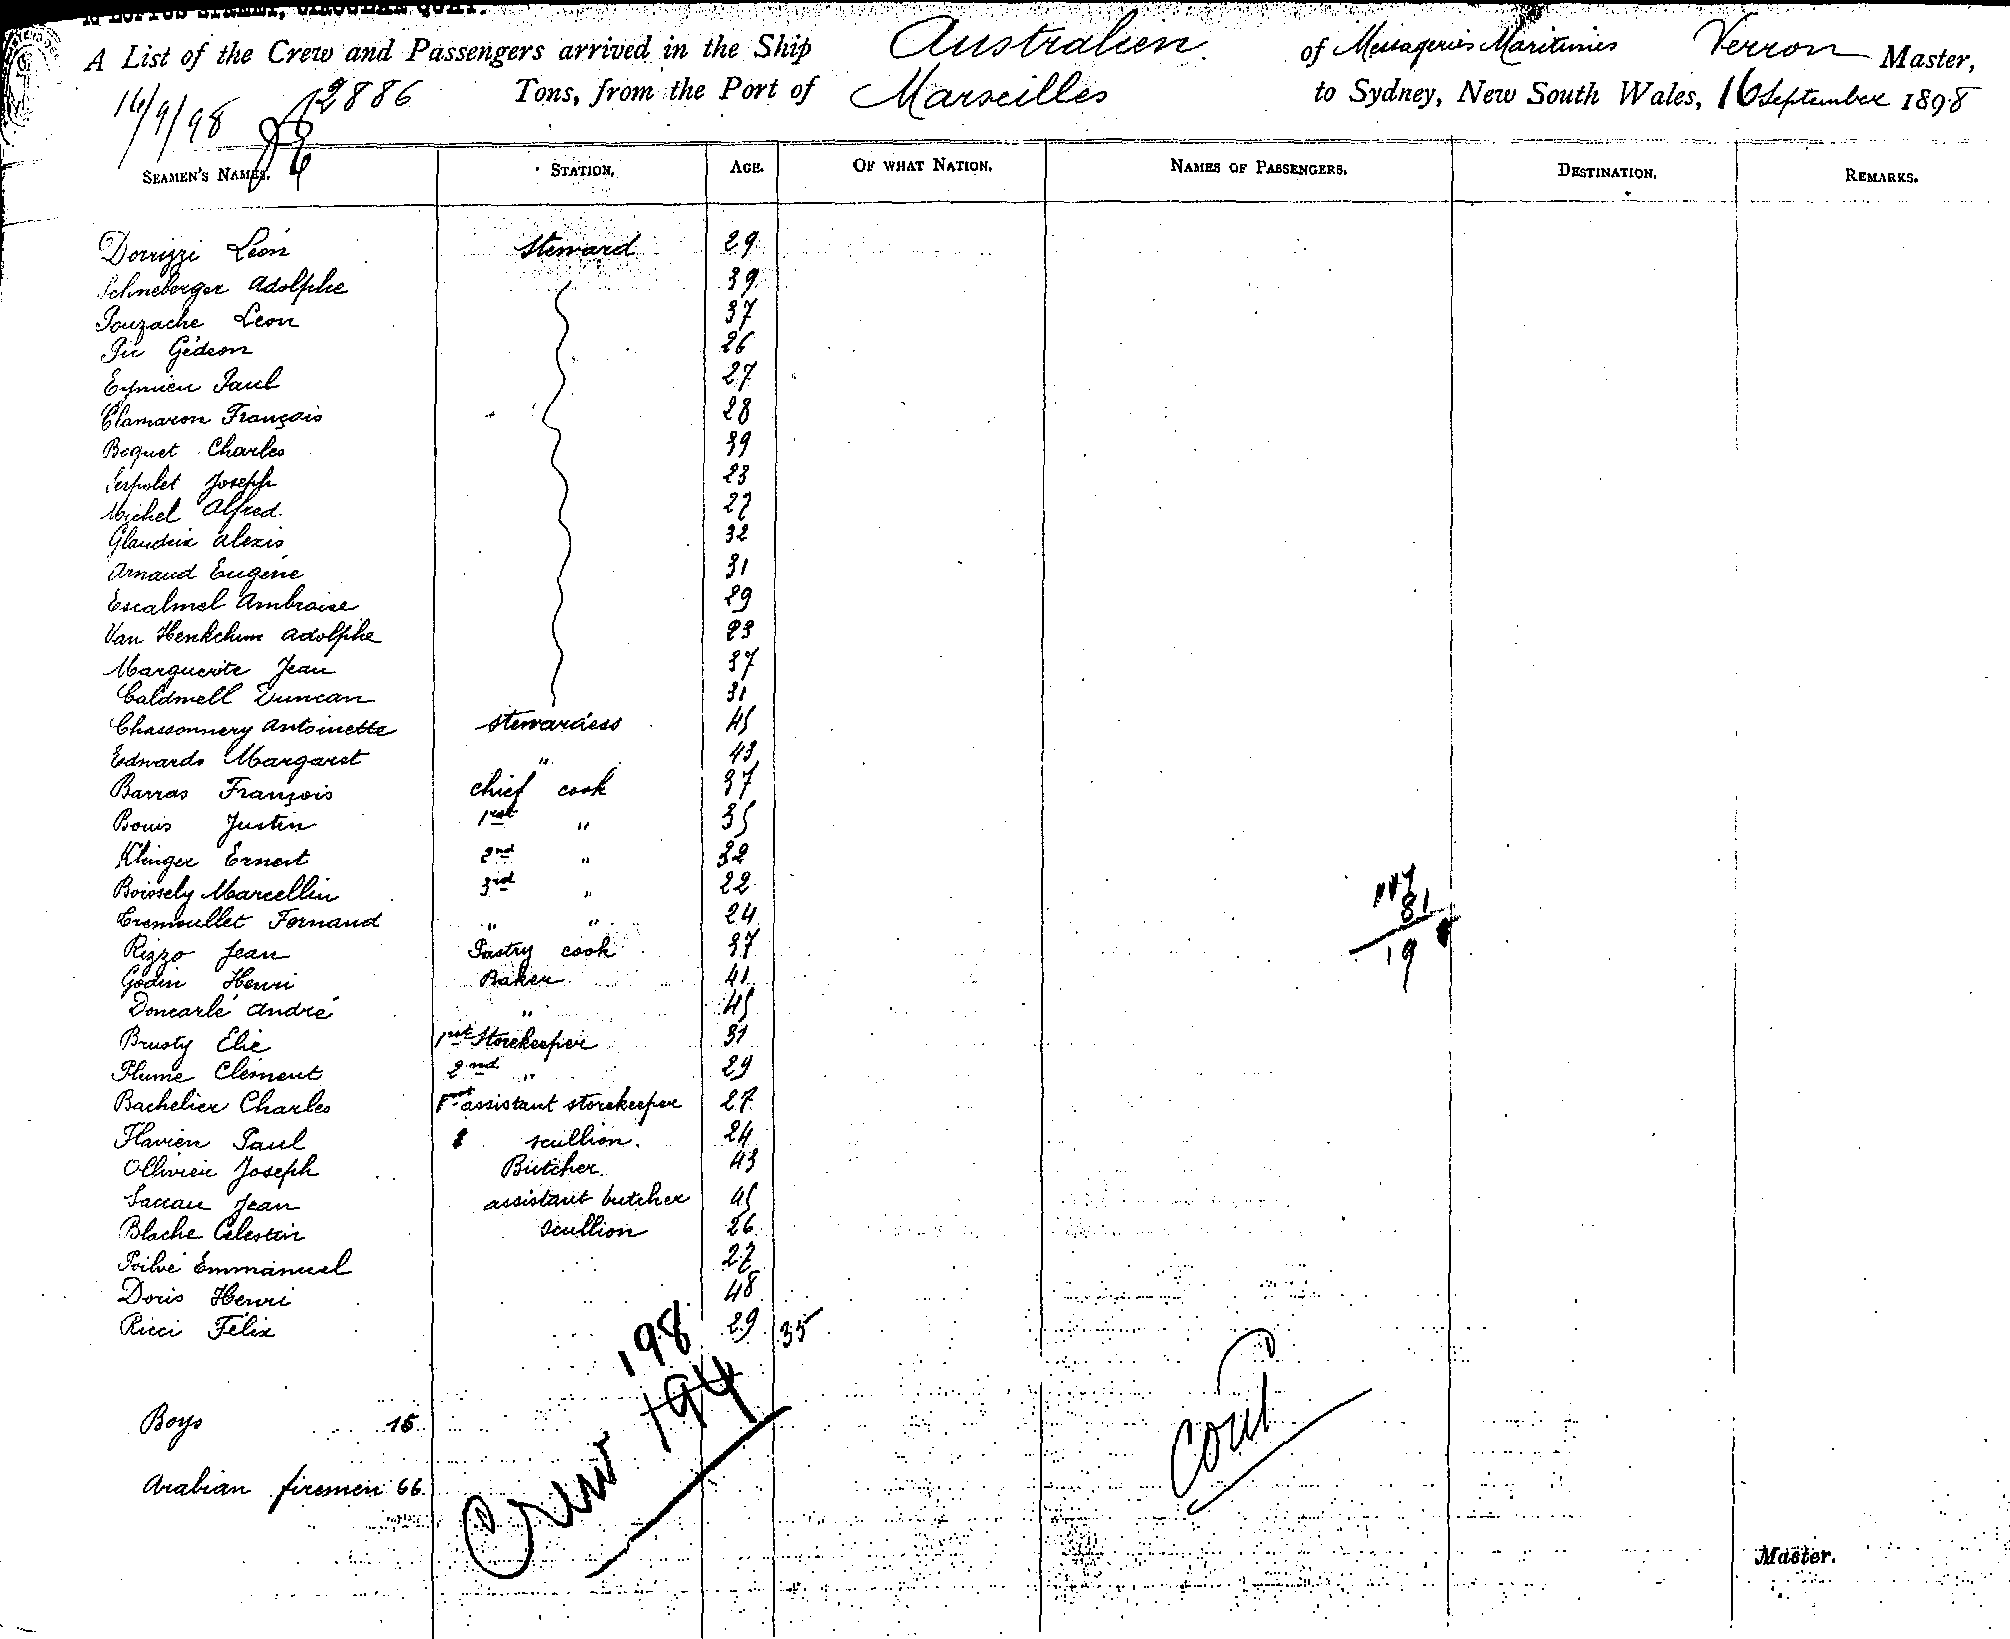 LOFTUS STREET, CIRCULAR QUAY.
A List of the Crew and Passengers arrived in the Ship Australien of Messageries Maritimes Verron Master,
16/9/98 2886 Tons, from the Port of Marseilles to Sydney, New South Wales, 16 September 1898
SEAMEN'S NAMES. STATION. AGE. OF WHAT NATION. NAMES OF PASSENGERS. DESTINATION. REMARKS.
Dorrizzi Léon Steward 29
Schneberger Adolphe 39
Pouzache Léon 37
Pic Gédeon 26
Eymieu Paul 27
Clamaron François 28
Boquet Charles 39
Serpolet Joseph 23
Michel Alfred 27
Glaudrix Alexis 32
Arnaud Eugène 31
Escalmel Ambroise 29
Van Henkelum Adolphe 23
Marguerite Jean 37
Caldwell Duncan 31
Chassonnery Antoinette stewardess 45
Edwards Margaret " 43
Barras François chief cook 37
Bouis Justin 1rst " 35
Klinger Ernest 2nd " 32
Boissely Marcellin 3rd " 22
Cremoullet Fernand " " 24
Rizzo Jean Pastry cook 37
Godin Henri Baker 41
Doncarlé André " 45
Brusty Elie 1rst Storekeeper 31
Plume Clément 2nd " 29
Bachelier Charles 1rst assistant storekeeper 27
Flavien Paul scullion. 24
Ollivier Joseph Butcher 43
Saccau Jean assistant butcher 45
Blache Célestin scullion 26
Poilvé Emmanuel 27
Doris Henri 48
Ricci Félix 29 35
81
19
198
194
Boys 15
Crew
Cont
Arabian firemen 66
Master.